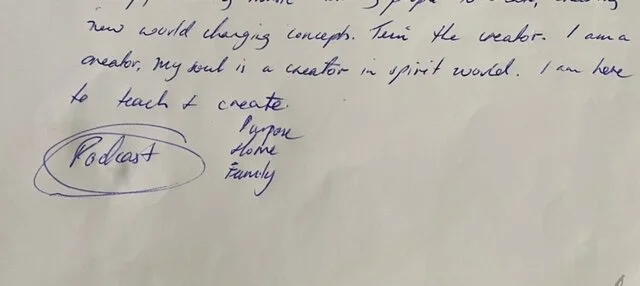 new world changing concepts. I'm the creator. I am a
creator, my soul is a creator in spirit world. I am here
to teach & create.
Purpose
Podcast Home
Family